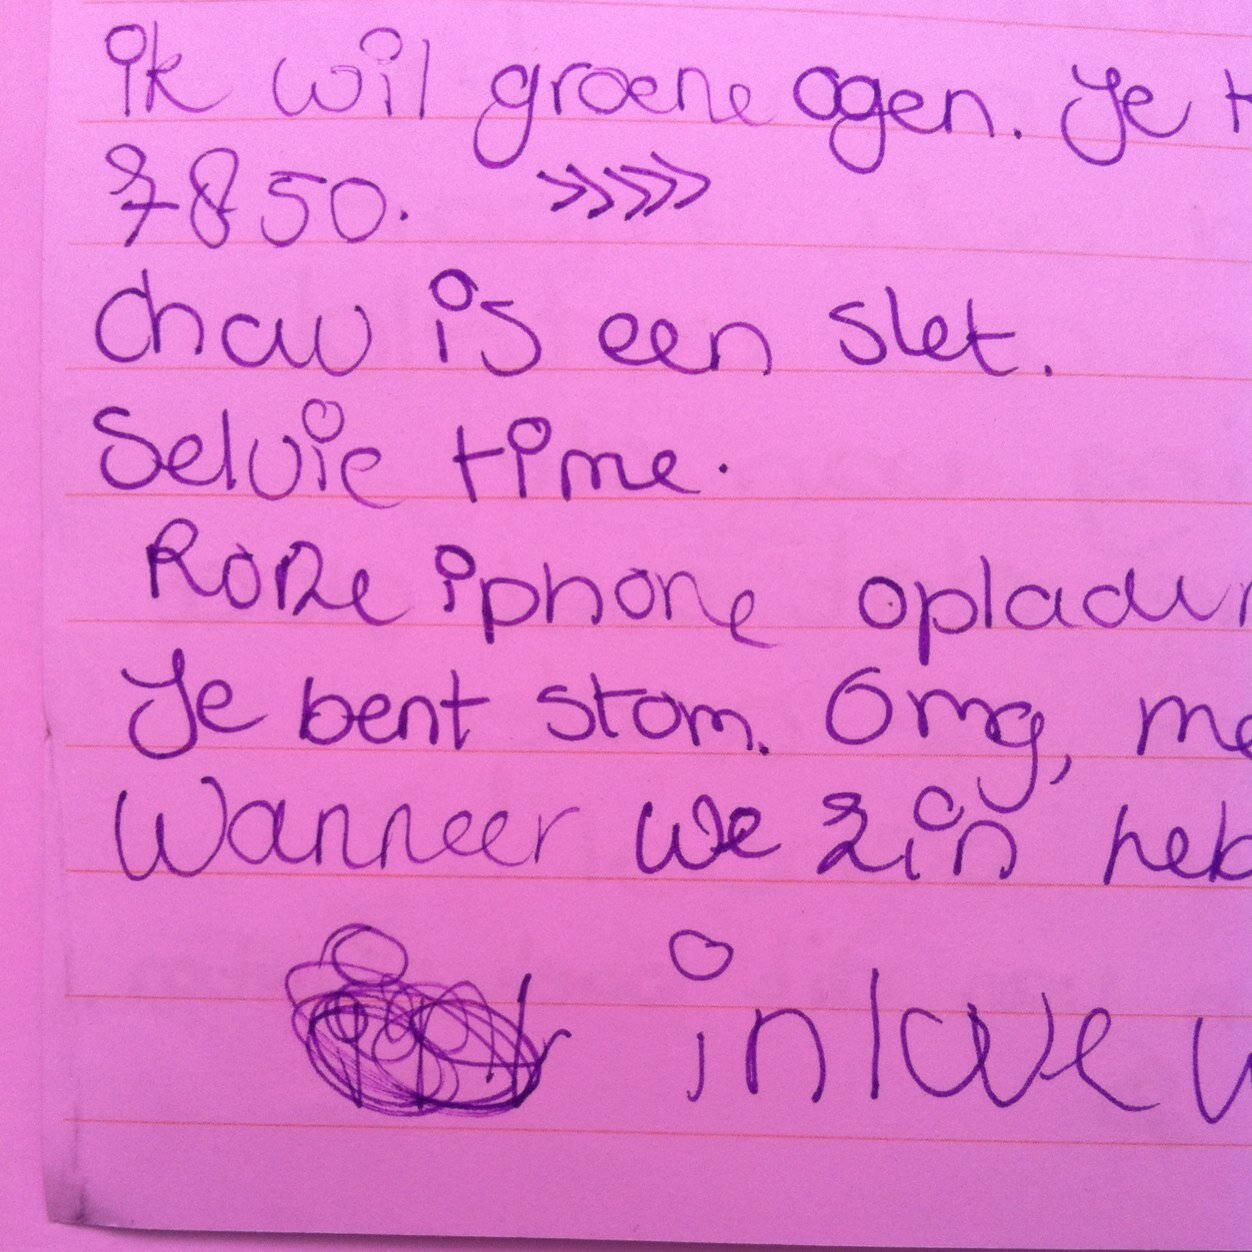 ik wil groene ogen. Je
7850. >>>>>
chaw is een slet.
Selvie time.
Roze iphone opladur
Je bent stom. Omg, me
Wanneer we zin heb
in love w